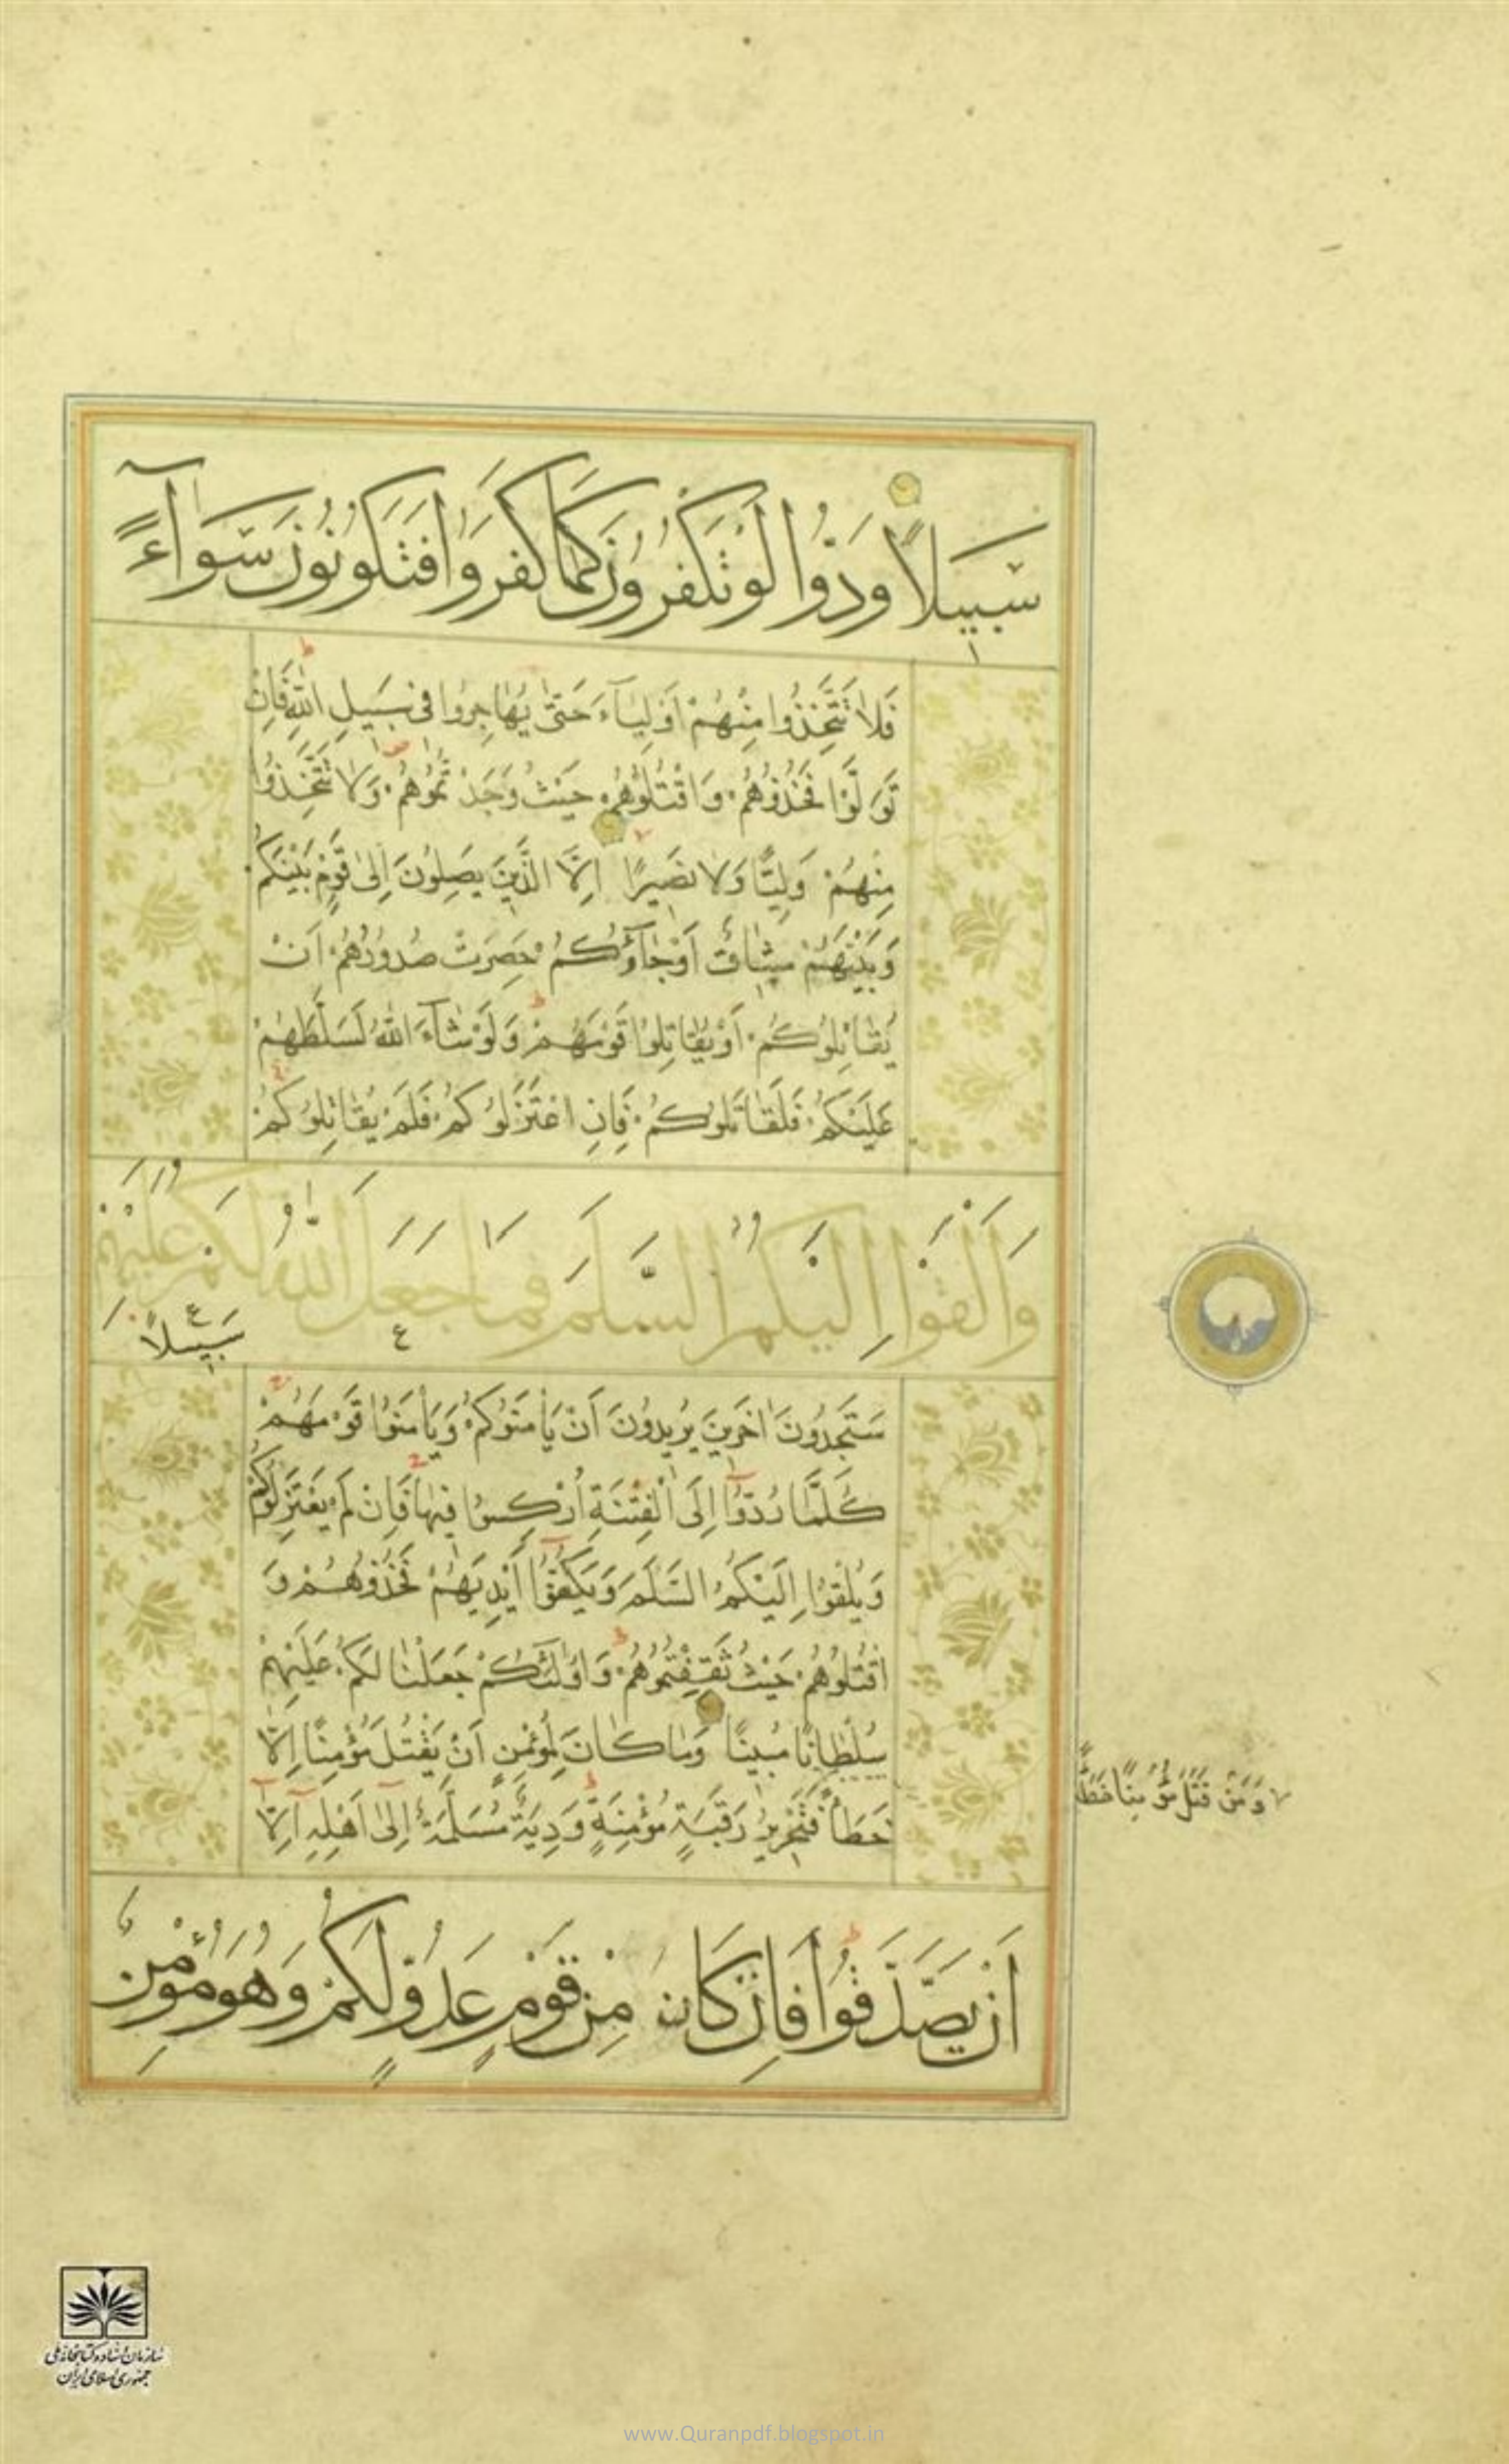 سَبِيلًا وَدُّوا لَوْ تَكْفُرُونَ كَمَا كَفَرُوا فَتَكُونُونَ سَوَآءً
فَلَا تَتَّخِذُوا مِنْهُمْ أَوْلِيَآءَ حَتّٰى يُهَاجِرُوا فِى سَبِيلِ اللّٰهِ فَاِنْ
تَوَلَّوْا فَخُذُوهُمْ وَاقْتُلُوهُمْ حَيْثُ وَجَدْتُمُوهُمْ وَلَا تَتَّخِذُوا
مِنْهُمْ وَلِيًّا وَلَا نَصِيرًا اِلَّا الَّذِينَ يَصِلُونَ اِلٰى قَوْمٍ بَيْنَكُمْ
وَبَيْنَهُمْ مِيثَاقٌ أَوْ جَآؤُكُمْ حَصِرَتْ صُدُورُهُمْ اَنْ
يُقَاتِلُوكُمْ اَوْ يُقَاتِلُوا قَوْمَهُمْ وَلَوْ شَآءَ اللّٰهُ لَسَلَّطَهُمْ
عَلَيْكُمْ فَلَقَاتَلُوكُمْ فَاِنِ اعْتَزَلُوكُمْ فَلَمْ يُقَاتِلُوكُمْ
وَاَلْقَوْا اِلَيْكُمُ السَّلَمَ فَمَا جَعَلَ اللّٰهُ لَكُمْ عَلَيْهِمْ
سَبِيلًا
سَتَجِدُونَ اٰخَرِينَ يُرِيدُونَ اَنْ يَأْمَنُوكُمْ وَيَأْمَنُوا قَوْمَهُمْ
كُلَّمَا رُدُّوٓا اِلَى الْفِتْنَةِ اُرْكِسُوا فِيهَا فَاِنْ لَمْ يَعْتَزِلُوكُمْ
وَيُلْقُوا اِلَيْكُمُ السَّلَمَ وَيَكُفُّوٓا اَيْدِيَهُمْ فَخُذُوهُمْ وَ
اقْتُلُوهُمْ حَيْثُ ثَقِفْتُمُوهُمْ وَاُولٰئِكُمْ جَعَلْنَا لَكُمْ عَلَيْهِمْ
سُلْطَانًا مُبِينًا وَمَا كَانَ لِمُؤْمِنٍ اَنْ يَقْتُلَ مُؤْمِنًا اِلَّا
خَطَأً فَتَحْرِيرُ رَقَبَةٍ مُؤْمِنَةٍ وَدِيَةٌ مُسَلَّمَةٌ اِلٰٓى اَهْلِهِ اِلَّآ
وَمَنْ قَتَلَ مُؤْمِنًا خَطَأً
اَنْ يَصَّدَّقُوا فَاِنْ كَانَ مِنْ قَوْمٍ عَدُوٍّ لَكُمْ وَهُوَ مُؤْمِنٌ
سازمان اسناد و کتابخانه ملی
جمهوری اسلامی ایران
www.Quranpdf.blogspot.in